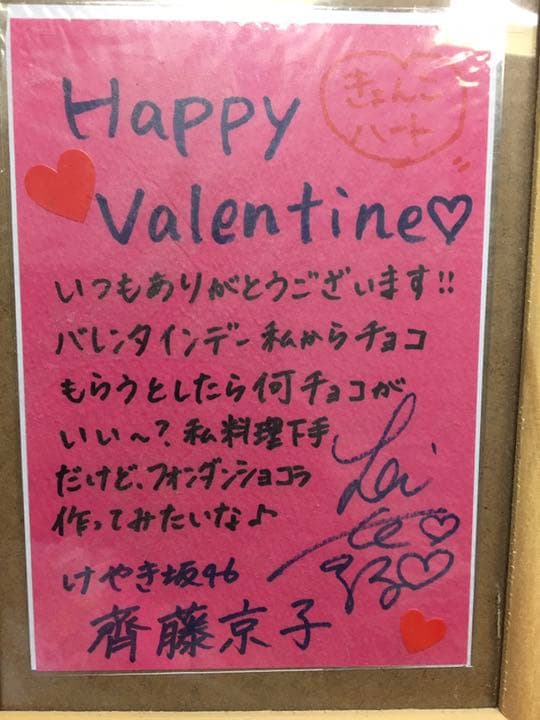 Happy
きょんこ
ハート
Valentine♡
いつもありがとうございます!!
バレンタインデー私からチョコ
もらうとしたら何チョコが
いい〜?私料理下手
だけど、フォンダンショコラ
作ってみたいな♪
けやき坂46
齊藤京子